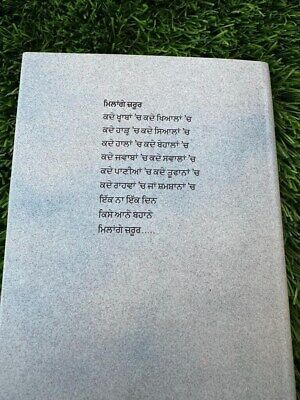 ਮਿਲਾਂਗੇ ਜ਼ਰੂਰ
ਕਦੇ ਖ਼ੂਾਬਾਂ 'ਚ ਕਦੇ ਖਿਆਲਾਂ 'ਚ
ਕਦੇ ਹਾੜ੍ਹ 'ਚ ਕਦੇ ਸਿਆਲਾਂ 'ਚ
ਕਦੇ ਹਾਲਾਂ 'ਚ ਕਦੇ ਬੇਹਾਲਾਂ 'ਚ
ਕਦੇ ਜਵਾਬਾਂ 'ਚ ਕਦੇ ਸਵਾਲਾਂ 'ਚ
ਕਦੇ ਪਾਣੀਆਂ 'ਚ ਕਦੇ ਤੂਫਾਨਾਂ 'ਚ
ਕਦੇ ਰਾਹਵਾਂ 'ਚ ਜਾਂ ਸ਼ਮਸ਼ਾਨਾਂ 'ਚ
ਇੱਕ ਨਾ ਇੱਕ ਦਿਨ
ਕਿਸੇ ਆਨੇ ਬਹਾਨੇ
ਮਿਲਾਂਗੇ ਜ਼ਰੂਰ.....